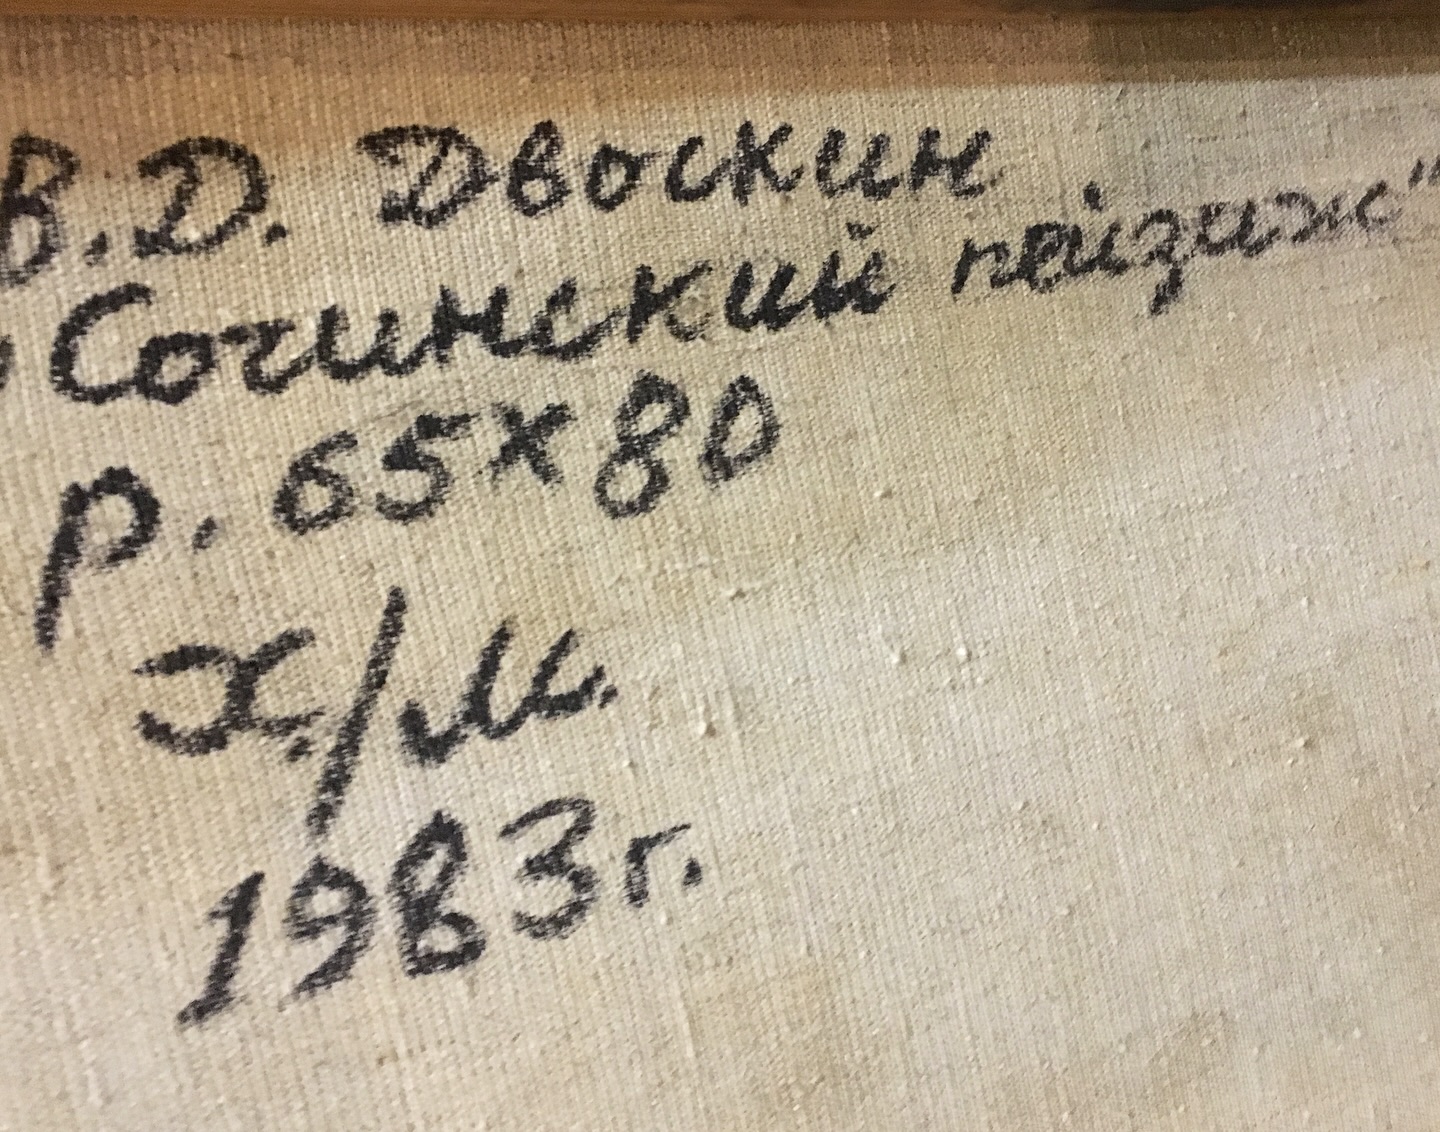 В.Д. Двоскин
"Сочинский пейзаж"
р. 65x80
х/м.
1983г.